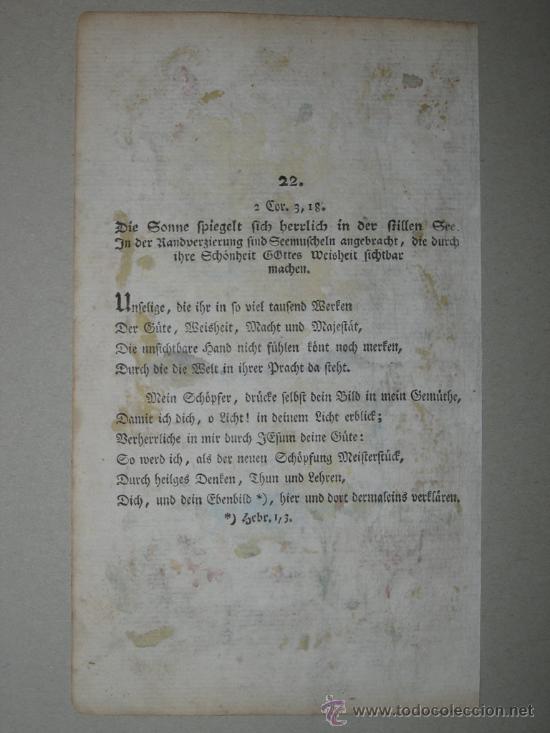 22.
2 Cor. 3, 18.
Die Sonne spiegelt sich herrlich in der stillen See.
In der Randverzierung sind Seemuscheln angebracht, die durch
ihre Schönheit GOttes Weisheit sichtbar
machen.
Unselige, die ihr in so viel tausend Werken
Der Güte, Weisheit, Macht und Majestät,
Die unsichtbare Hand nicht fühlen könt noch merken,
Durch die die Welt in ihrer Pracht da steht.
Mein Schöpfer, drücke selbst dein Bild in mein Gemüthe,
Damit ich dich, o Licht! in deinem Licht erblick;
Verherrliche in mir durch JEsum deine Güte:
So werd ich, als der neuen Schöpfung Meisterstück,
Durch heilges Denken, Thun und Lehren,
Dich, und dein Ebenbild *), hier und dort dermaleins verklären.
*) Hebr. 1, 3.
TC www.todocoleccion.net